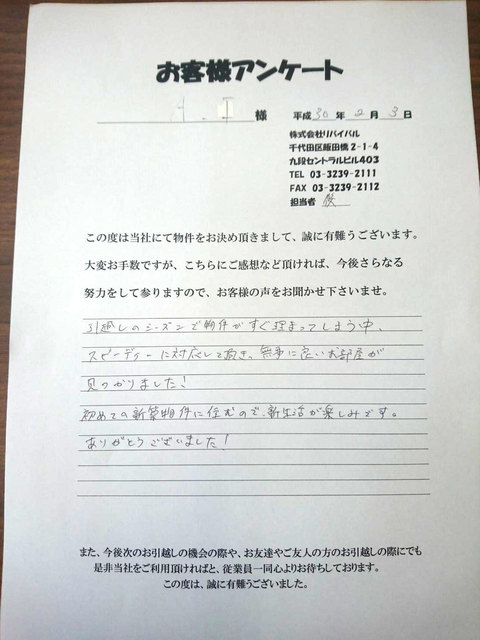 お客様アンケート
様 平成30年2月3日
株式会社リバイバル
千代田区飯田橋2-1-4
九段セントラルビル403
TEL 03-3239-2111
FAX 03-3239-2112
担当者
この度は当社にて物件をお決め頂きまして、誠に有難うございます。
大変お手数ですが、こちらにご感想など頂ければ、今後さらなる
努力をして参りますので、お客様の声をお聞かせ下さいませ。
引越しのシーズンで物件がすぐ埋まってしまう中、
スピーディーに対応して頂き、無事に良いお部屋が
見つかりました!
初めての新築物件に住むので、新生活が楽しみです。
ありがとうございました!
また、今後次のお引越しの機会の際や、お友達やご友人の方のお引越しの際にでも
是非当社をご利用頂ければと、従業員一同心よりお待ちしております。
この度は、誠に有難うございました。